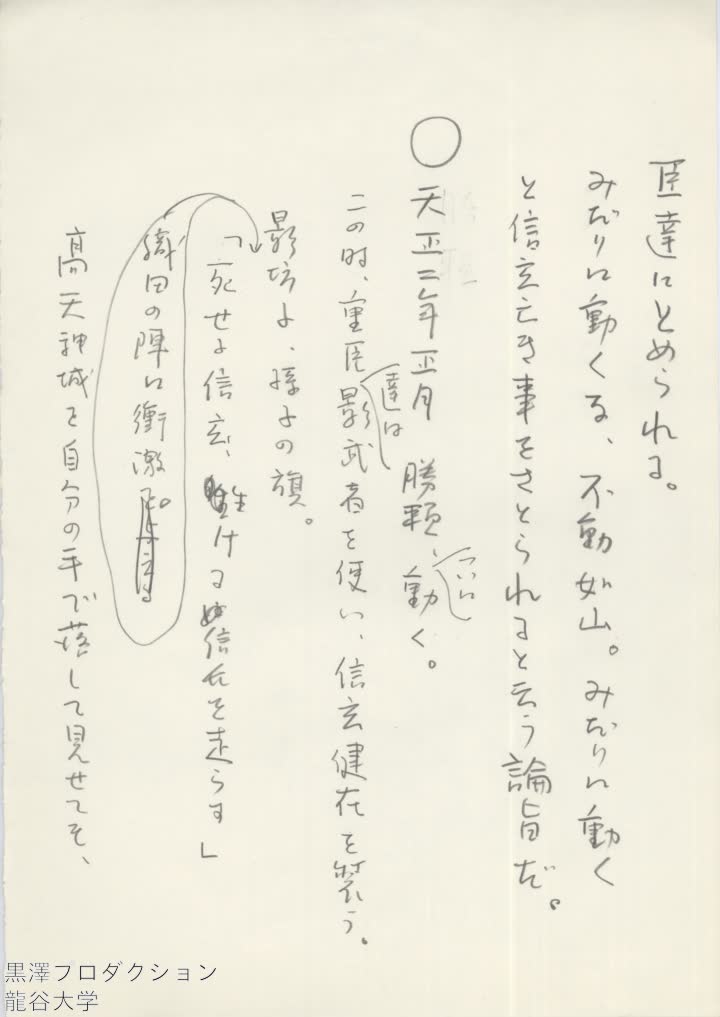 臣達にとめられる。
みだりに動くな、不動如山。みだりに動く
と信玄亡き事をさとられると云う論旨だ。
○天正二年正月 勝頼、ついに動く。
この時、重臣達は影武者を使い、信玄健在を装う。
影坊よ、孫子の旗。
「死せる信玄、生ける信長を走らす」
織田の陣に衝激。
高天神城を自分の手で落して見せてこそ、
黒澤プロダクション
龍谷大学